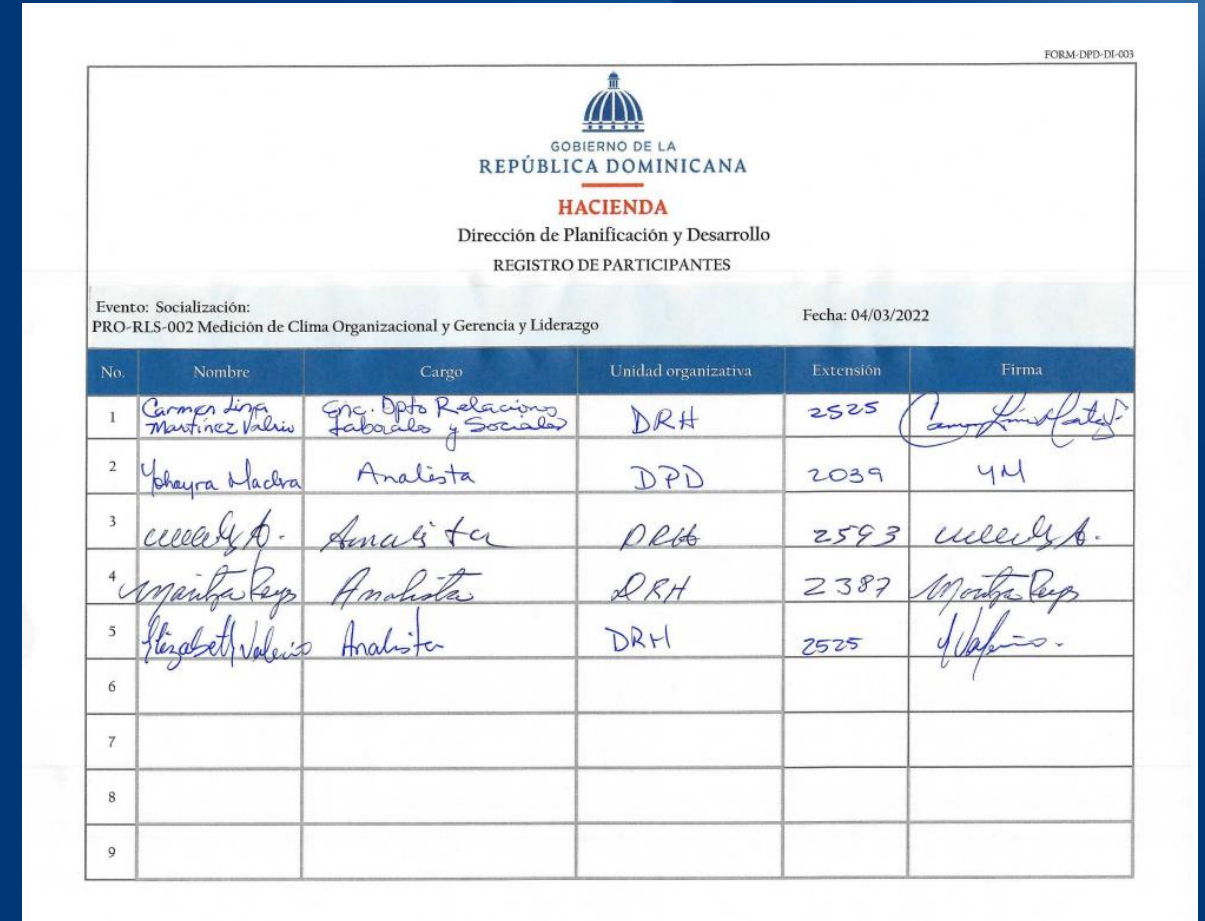 FORM-DPD-DI-003
GOBIERNO DE LA
REPÚBLICA DOMINICANA
HACIENDA
Dirección de Planificación y Desarrollo
REGISTRO DE PARTICIPANTES
Evento: Socialización:
PRO-RLS-002 Medición de Clima Organizacional y Gerencia y Liderazgo
Fecha: 04/03/2022
No. Nombre Cargo Unidad organizativa Extensión Firma
1 Carmen Martínez Valerio Enc. Dpto Relaciones Laborales y Sociales DRH 2525
2 Yohayra Analista DPD 2039 YM
3 Analista DRH 2593
4 Maritza Reyes Analista DRH 2387 Maritza Reyes
5 Elizabeth Valerio Analista DRH 2525 Valerio.
6
7
8
9